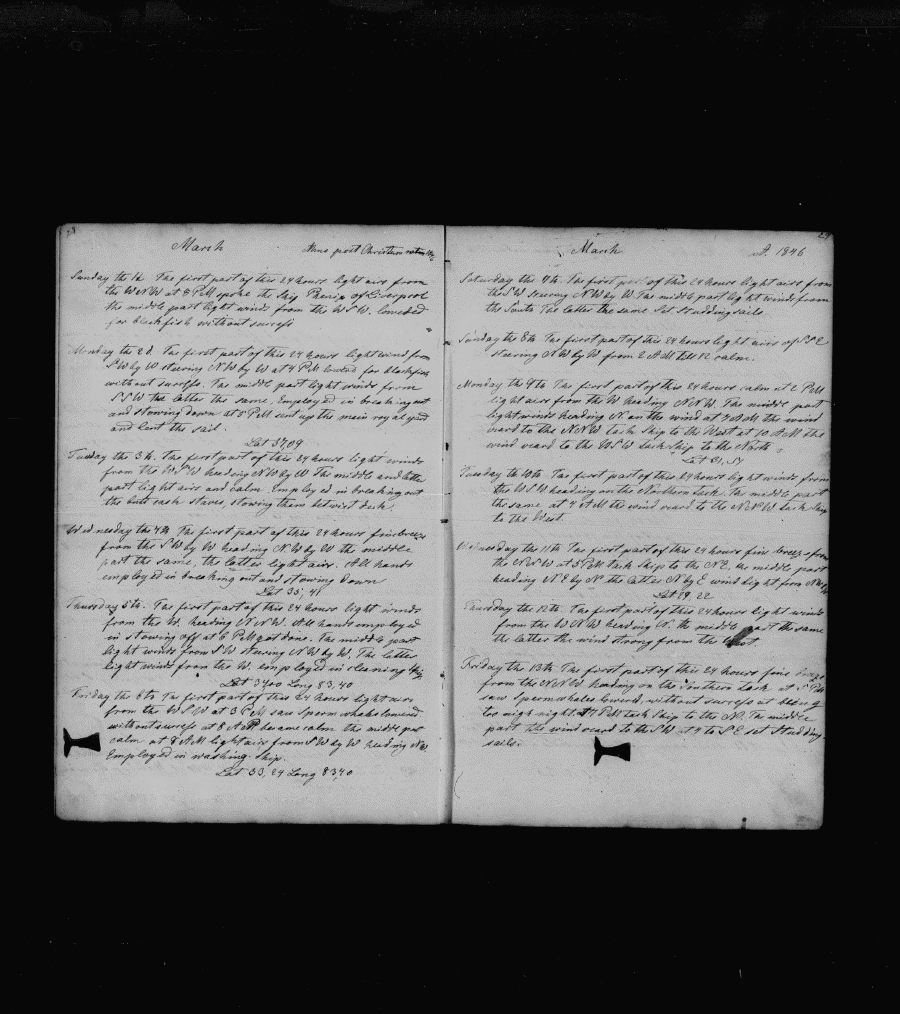 March
Sunday the 1st. The first part of this 24 hours light airs from
the WNW at 8 PM spoke the ship of Liverpool
the middle part light winds from the WSW. lowered
for blackfish without success
Monday the 2d. The first part of this 24 hours light wind from
SW by W steering NW by W at 4 PM lowered for blackfish
without success. The middle part light winds from
SSW the latter the same. Employed in breaking out
and stowing down at 5 PM sent up the main royal yard
and bent the sail.
Lat 37,09
Tuesday the 3d. The first part of this 24 hours light winds
from the WSW heading NW by W The middle and latter
part light airs and calm. Employed in breaking out
the cask staves, stowing them betwixt deck.
Wednesday the 4th The first part of this 24 hours fine breeze
from the SW by W heading NW by W the middle
part the same, the latter light airs. All hands
employed in breaking out and stowing down
Lat 35, 41
Thursday 5th. The first part of this 24 hours light winds
from the W. heading NNW. All hands employed
in stowing off at 6 PM got done. The middle part
light winds from SW steering NW by W. The latter
light winds from the W. employed in cleaning
Lat 3400 Long 83,40
Friday the 6th The first part of this 24 hours light airs
from the WSW at 3 PM saw Sperm whales lowered
without success at 8 became calm the middle part
calm at 8 AM light airs from SW by W heading NW
Employed in washing ship.
Lat 33, 24 Long 8340
March A.D. 1846
Saturday the 7th. The first part of this 24 hours light airs from
the SW steering NW by W. The middle part light winds from
the South The latter the same Set Studdingsails.
Sunday the 8th The first part of this 24 hours light airs of SSE
steering NW by W from 2 AM till 12 calm.
Monday the 9th The first part of this 24 hours calm at 2 PM
light airs from the W heading NNW. The middle part
light winds heading N on the wind at 3 AM the wind
veard to the NNW tack ship to the West at 10 AM the
wind veard to the WSW tack ship to the North
Lat 31, 57
Tuesday the 10th. The first part of this 24 hours light winds from
the WSW heading on the Northern tack. The middle part
the same at 4 AM the wind veard to the NNW tack ship
to the West.
Wednesday the 11th. The first part of this 24 hours fine breeze from
the NNW at 5 PM tack ship to the NE, the middle part
heading NE by N the latter N by E wind light from
Lat 29, 22
Thursday the 12th. The first part of this 24 hours light winds
from the WNW heading N. the middle part the same
the latter the wind strong from the West.
Friday the 13th. The first part of this 24 hours fine breeze
from the NNW heading on the Southern tack at 5 PM
saw Spermwhales lowered, without success at being
too nigh night. at PM tack ship to the N. The middle
part the wind veard to the SW at 9 to SE set studding
sails.